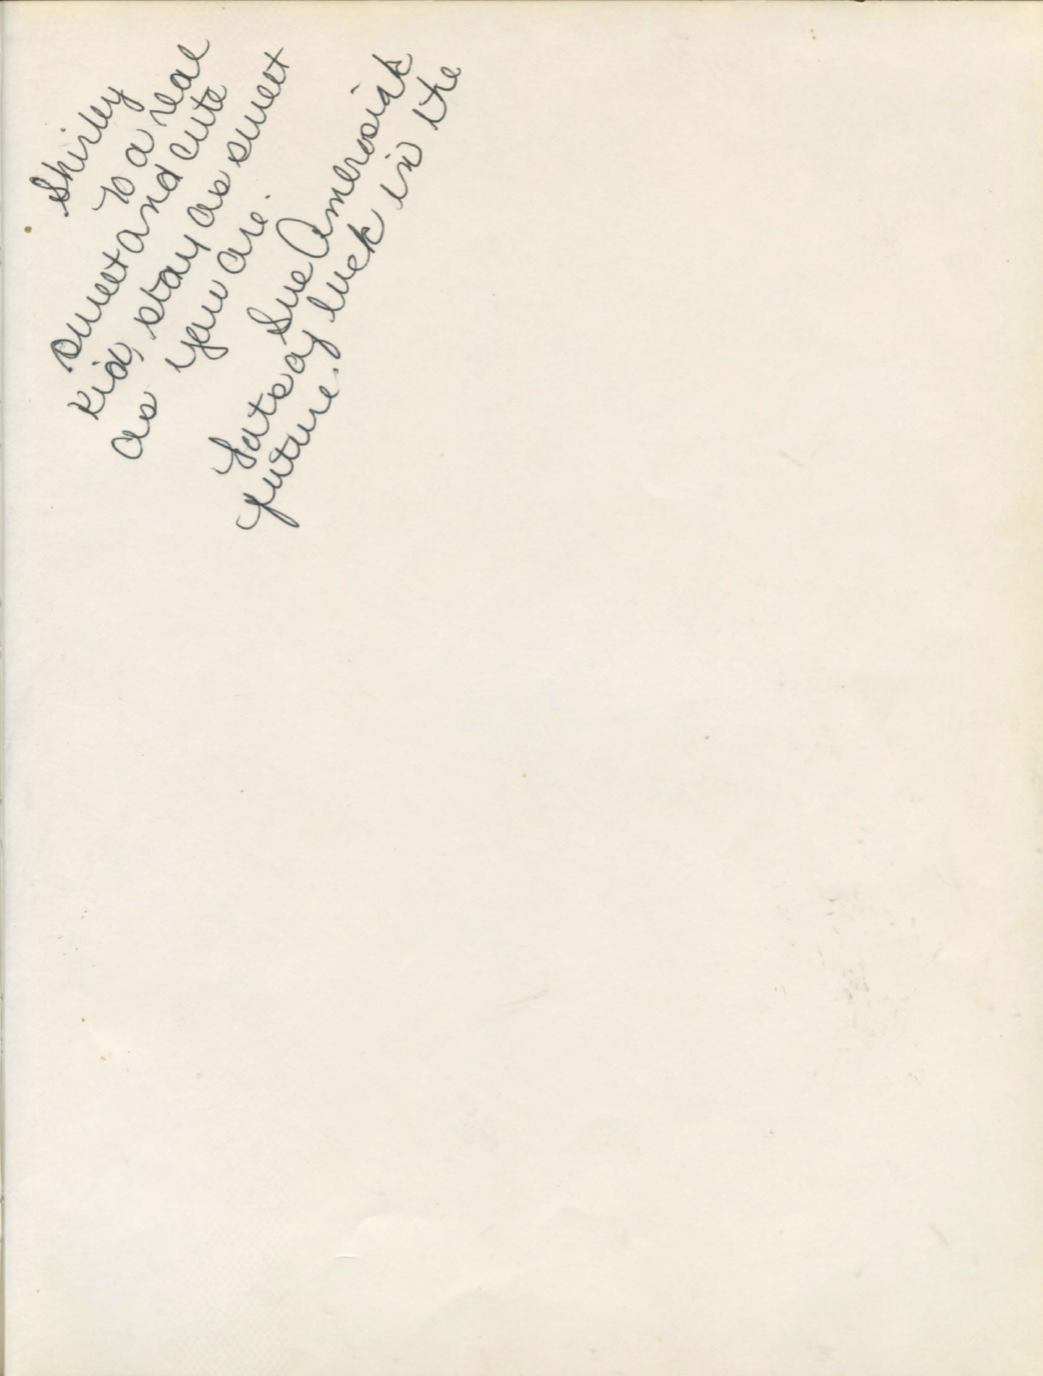 Shirley
To a real
sweet and cute
kid, stay as sweet
as you are.
Sue Amerosiak
Lots of luck in the
future.